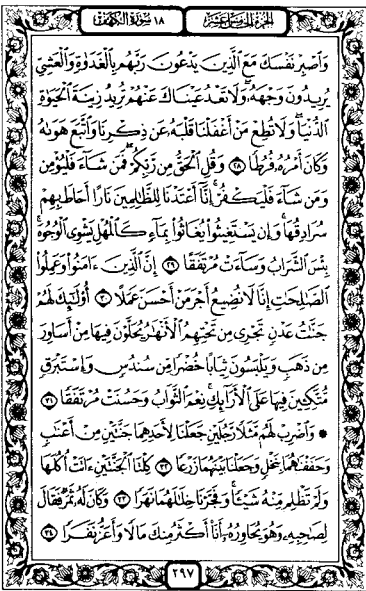 الجزء الخامس عشر
١٨ سورة الكهف
وَٱصۡبِرۡ نَفۡسَكَ مَعَ ٱلَّذِينَ يَدۡعُونَ رَبَّهُم بِٱلۡغَدَوٰةِ وَٱلۡعَشِيِّ
يُرِيدُونَ وَجۡهَهُۥۖ وَلَا تَعۡدُ عَيۡنَاكَ عَنۡهُمۡ تُرِيدُ زِينَةَ ٱلۡحَيَوٰةِ
ٱلدُّنۡيَاۖ وَلَا تُطِعۡ مَنۡ أَغۡفَلۡنَا قَلۡبَهُۥ عَن ذِكۡرِنَا وَٱتَّبَعَ هَوَىٰهُ
وَكَانَ أَمۡرُهُۥ فُرُطٗا ٢٨ وَقُلِ ٱلۡحَقُّ مِن رَّبِّكُمۡۖ فَمَن شَآءَ فَلۡيُؤۡمِن
وَمَن شَآءَ فَلۡيَكۡفُرۡۚ إِنَّآ أَعۡتَدۡنَا لِلظَّٰلِمِينَ نَارًا أَحَاطَ بِهِمۡ
سُرَادِقُهَاۚ وَإِن يَسۡتَغِيثُواْ يُغَاثُواْ بِمَآءٖ كَٱلۡمُهۡلِ يَشۡوِي ٱلۡوُجُوهَۚ
بِئۡسَ ٱلشَّرَابُ وَسَآءَتۡ مُرۡتَفَقًا ٢٩ إِنَّ ٱلَّذِينَ ءَامَنُواْ وَعَمِلُواْ
ٱلصَّٰلِحَٰتِ إِنَّا لَا نُضِيعُ أَجۡرَ مَنۡ أَحۡسَنَ عَمَلًا ٣٠ أُوْلَٰٓئِكَ لَهُمۡ
جَنَّٰتُ عَدۡنٖ تَجۡرِي مِن تَحۡتِهِمُ ٱلۡأَنۡهَٰرُ يُحَلَّوۡنَ فِيهَا مِنۡ أَسَاوِرَ
مِن ذَهَبٖ وَيَلۡبَسُونَ ثِيَابًا خُضۡرٗا مِّن سُندُسٖ وَإِسۡتَبۡرَقٖ
مُّتَّكِـِٔينَ فِيهَا عَلَى ٱلۡأَرَآئِكِۚ نِعۡمَ ٱلثَّوَابُ وَحَسُنَتۡ مُرۡتَفَقٗا ٣١
* وَٱضۡرِبۡ لَهُم مَّثَلٗا رَّجُلَيۡنِ جَعَلۡنَا لِأَحَدِهِمَا جَنَّتَيۡنِ مِنۡ أَعۡنَٰبٖ
وَحَفَفۡنَٰهُمَا بِنَخۡلٖ وَجَعَلۡنَا بَيۡنَهُمَا زَرۡعٗا ٣٢ كِلۡتَا ٱلۡجَنَّتَيۡنِ ءَاتَتۡ أُكُلَهَا
وَلَمۡ تَظۡلِم مِّنۡهُ شَيۡـٔٗاۚ وَفَجَّرۡنَا خِلَٰلَهُمَا نَهَرٗا ٣٣ وَكَانَ لَهُۥ ثَمَرٞ فَقَالَ
لِصَٰحِبِهِۦ وَهُوَ يُحَاوِرُهُۥٓ أَنَا۠ أَكۡثَرُ مِنكَ مَالٗا وَأَعَزُّ نَفَرٗا ٣٤
٢٩٧